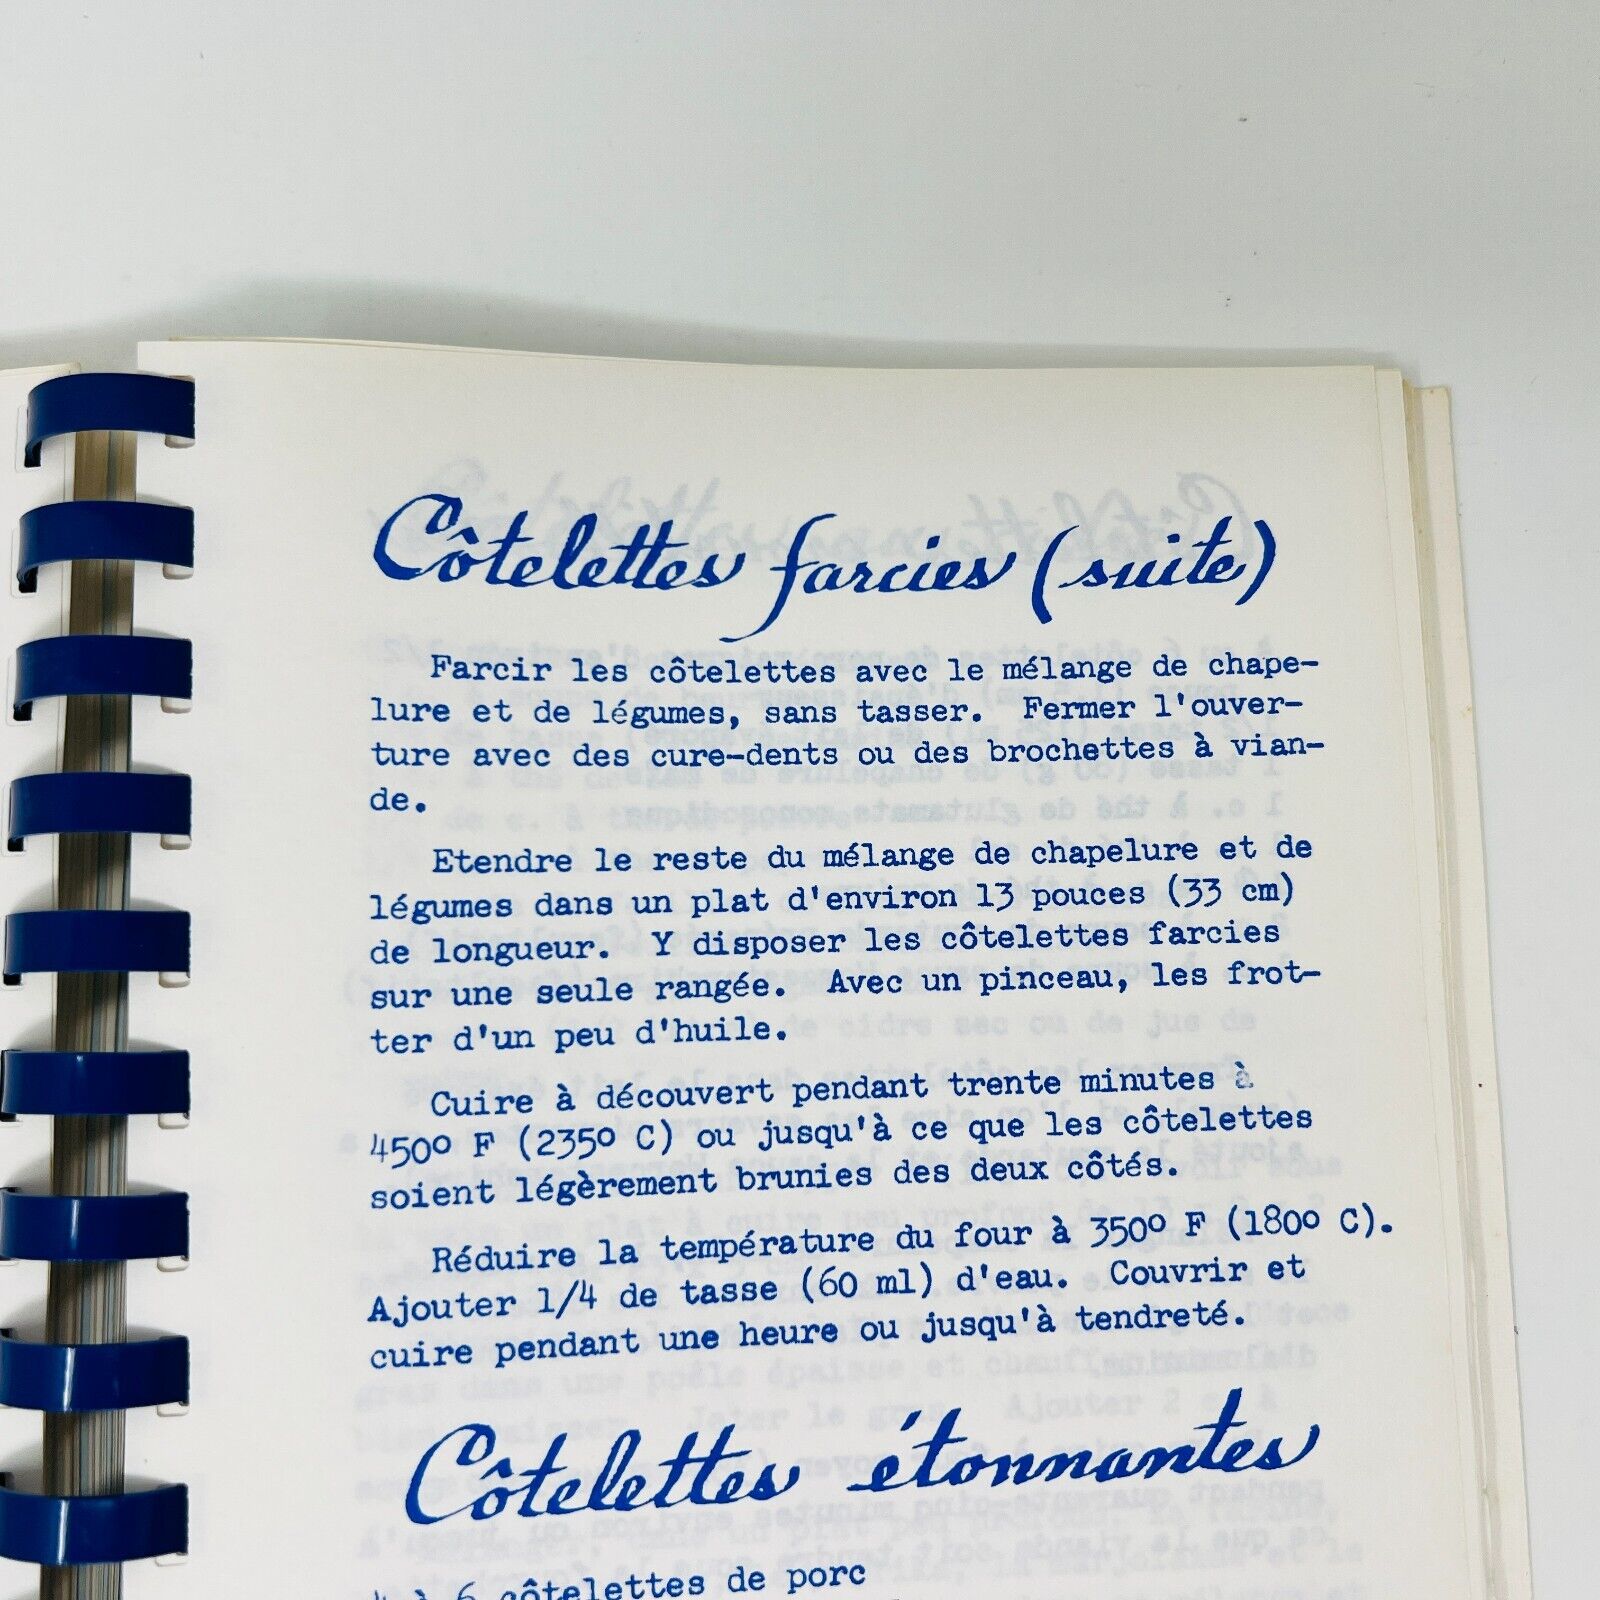 Côtelettes farcies (suite)
Farcir les côtelettes avec le mélange de chape-
lure et de légumes, sans tasser. Fermer l'ouver-
ture avec des cure-dents ou des brochettes à vian-
de.
Etendre le reste du mélange de chapelure et de
légumes dans un plat d'environ 13 pouces (33 cm)
de longueur. Y disposer les côtelettes farcies
sur une seule rangée. Avec un pinceau, les frot-
ter d'un peu d'huile.
Cuire à découvert pendant trente minutes à
450º F (235º C) ou jusqu'à ce que les côtelettes
soient légèrement brunies des deux côtés.
Réduire la température du four à 350º F (180º C).
Ajouter 1/4 de tasse (60 ml) d'eau. Couvrir et
cuire pendant une heure ou jusqu'à tendreté.
Côtelettes étonnantes
4 à 6 côtelettes de porc